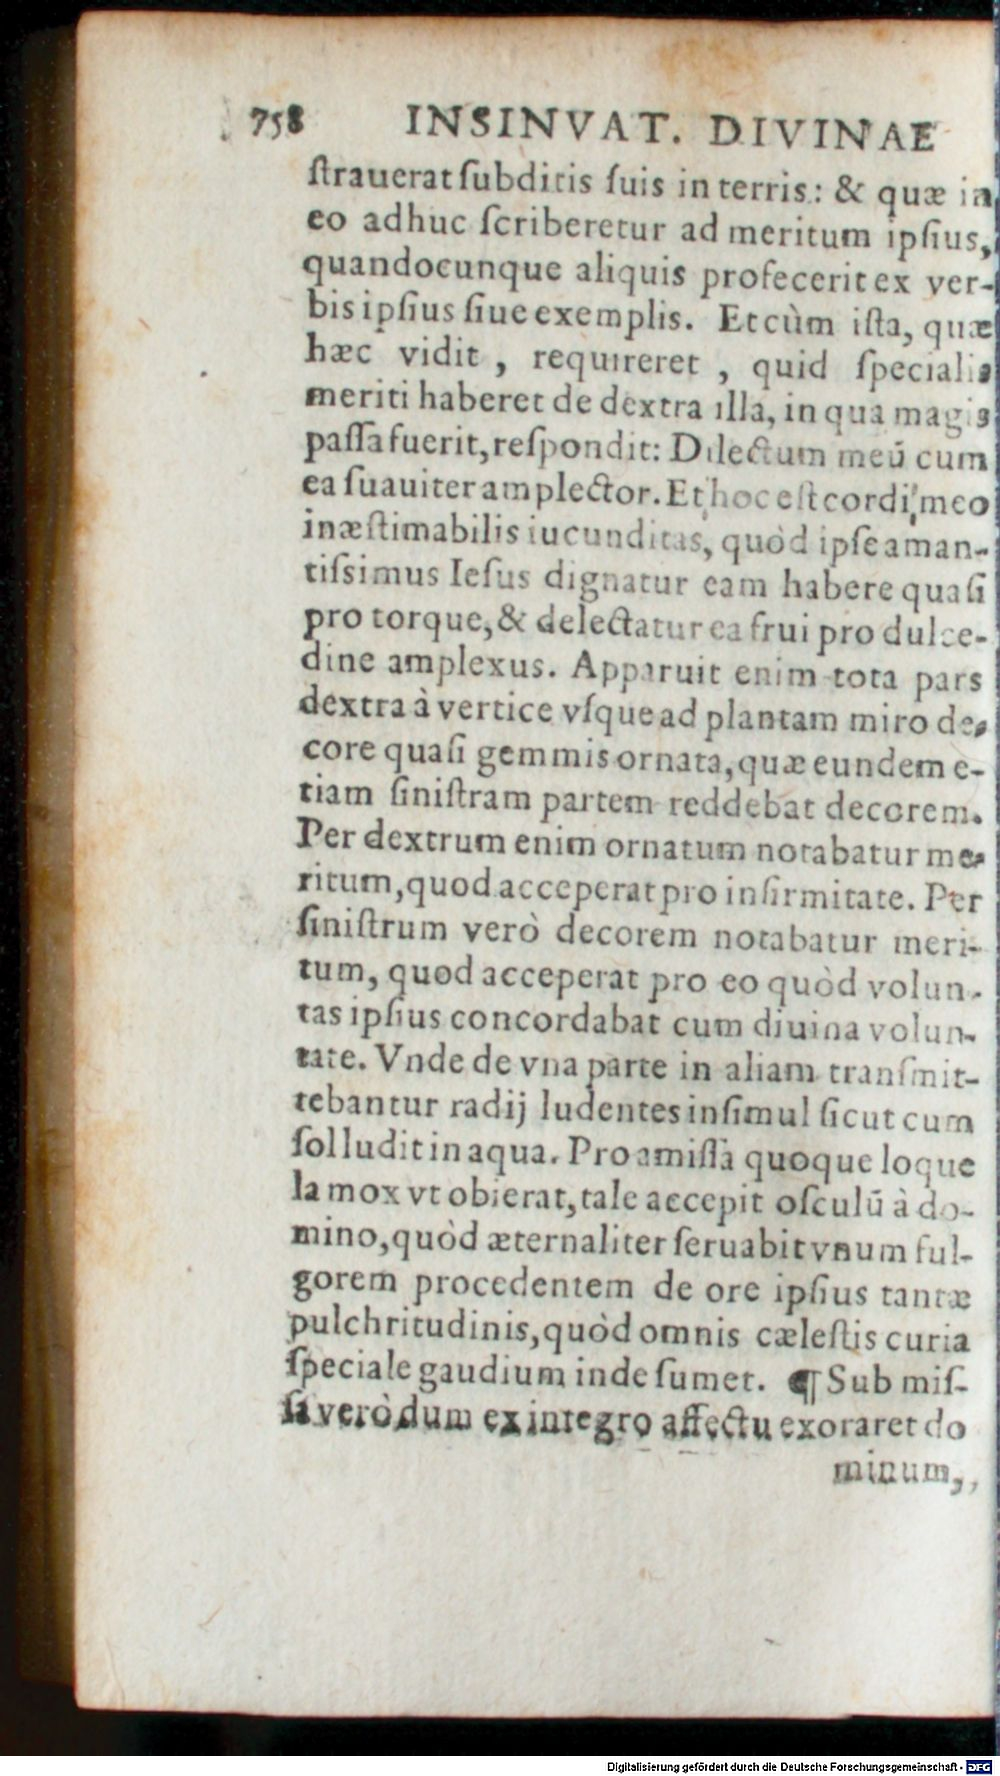 758 INSINVAT. DIVINAE
ſtrauerat ſubditis ſuis in terris: & quæ in
eo adhuc ſcriberetur ad meritum ipſius,
quandocunque aliquis profecerit ex ver-
bis ipſius ſiue exemplis. Et cùm iſta, quæ
hæc vidit, requireret, quid ſpecialis
meriti haberet de dextra illa, in qua magis
paſſa fuerit, reſpondit: Dilectum meū cum
ea ſuauiter amplector. Et hoc eſt cordi meo
inæſtimabilis iucunditas, quòd ipſe aman-
tiſsimus Ieſus dignatur eam habere quaſi
pro torque, & delectatur ea frui pro dulce-
dine amplexus. Apparuit enim tota pars
dextra à vertice vſque ad plantam miro de-
core quaſi gemmis ornata, quæ eundem e-
tiam ſiniſtram partem reddebat decorem.
Per dextrum enim ornatum notabatur me-
ritum, quod acceperat pro infirmitate. Per
ſiniſtrum verò decorem notabatur meri-
tum, quod acceperat pro eo quòd volun-
tas ipſius concordabat cum diuina volun-
tate. Vnde de vna parte in aliam tranſmit-
tebantur radij ludentes inſimul ſicut cum
ſol ludit in aqua. Pro amiſſa quoque loque
la mox vt obierat, tale accepit oſculū à do-
mino, quòd æternaliter ſeruabit vnum ful-
gorem procedentem de ore ipſius tantæ
pulchritudinis, quòd omnis cæleſtis curia
ſpeciale gaudium inde ſumet. ¶ Sub miſ-
ſa verò dum ex integro affectu exoraret do
minum,
Digitalisierung gefördert durch die Deutsche Forschungsgemeinschaft - DFG